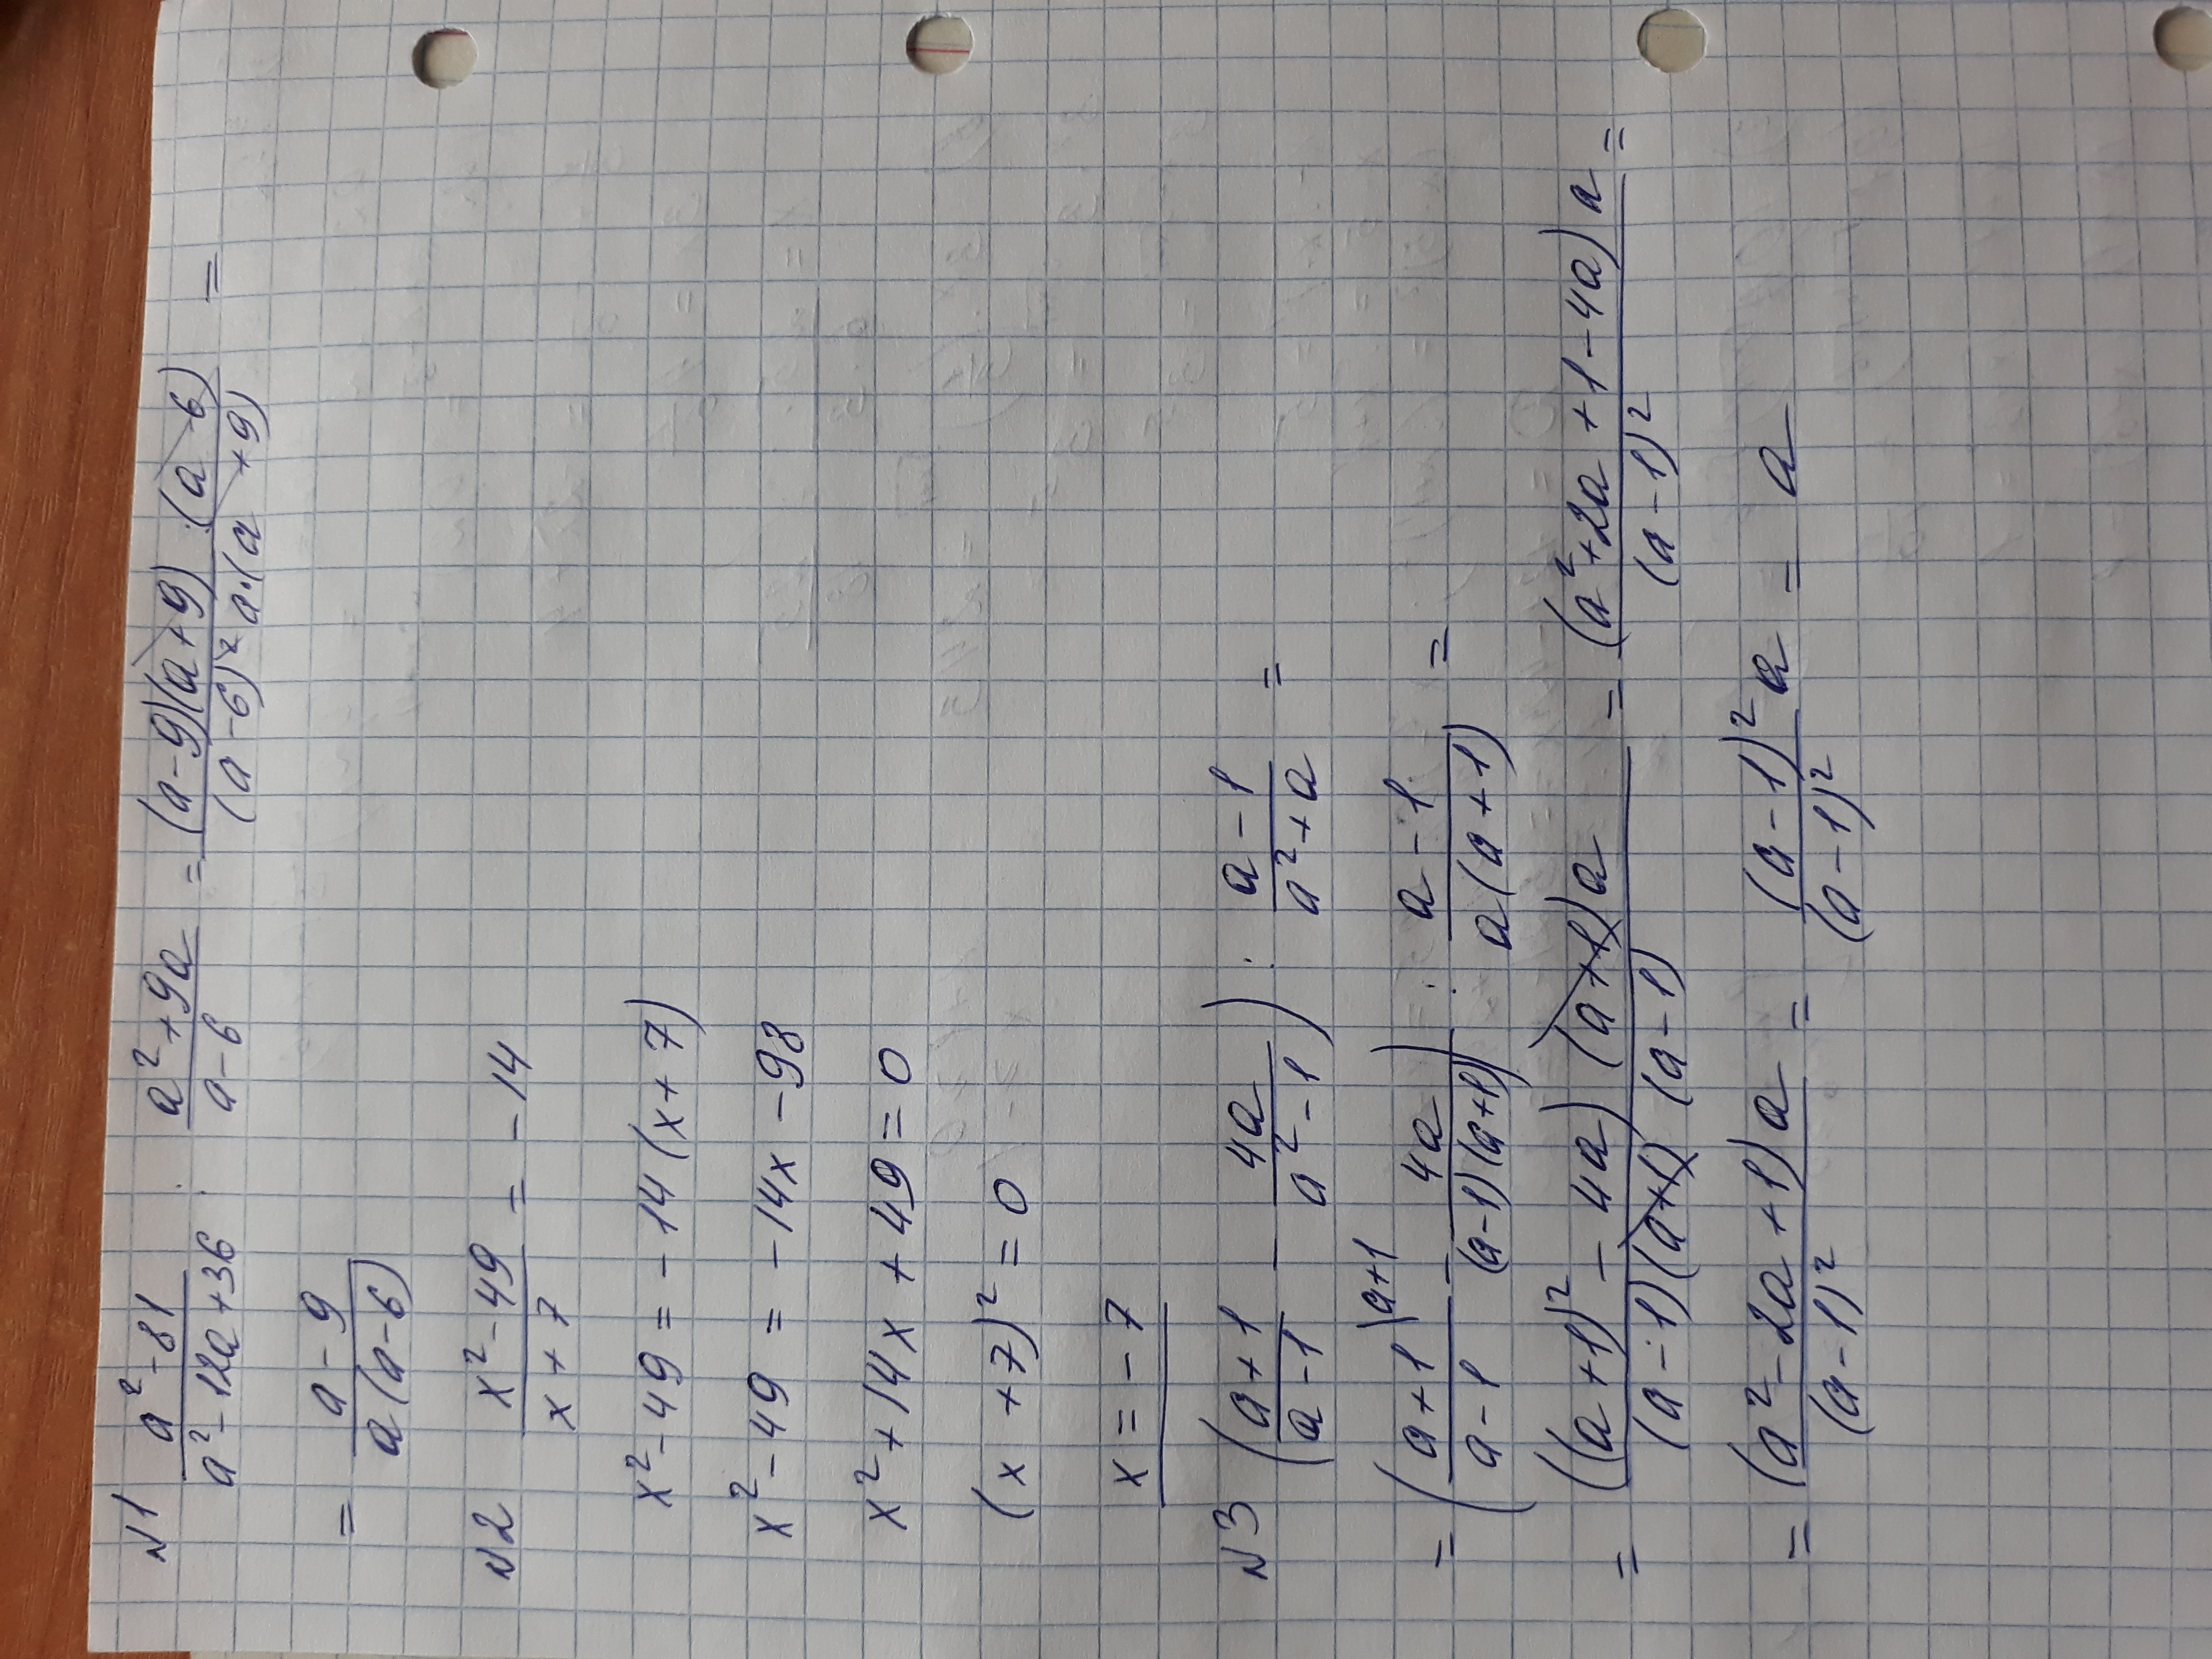 №1 (a²-81)/(a²-12a+36) : (a²+9a)/(a-6) = ((a-9)(a+9)·(a-6))/((a-6)² a·(a+9)) =
= (a-9)/(a(a-6))
№2 (x²-49)/(x+7) = -14
x²-49 = -14(x+7)
x²-49 = -14x-98
x²+14x+49=0
(x+7)²=0
x=-7
№3 ((a+1)/(a-1) - 4a/(a²-1)) : (a-1)/(a²+a) =
= ((a+1)/(a-1) \a+1 - 4a/((a-1)(a+1))) : (a-1)/(a(a+1)) =
= (((a+1)²-4a)(a+1)a)/((a-1)(a+1)(a-1)) = ((a²+2a+1-4a)a)/(a-1)² =
= ((a²-2a+1)a)/(a-1)² = ((a-1)²a)/(a-1)² = a